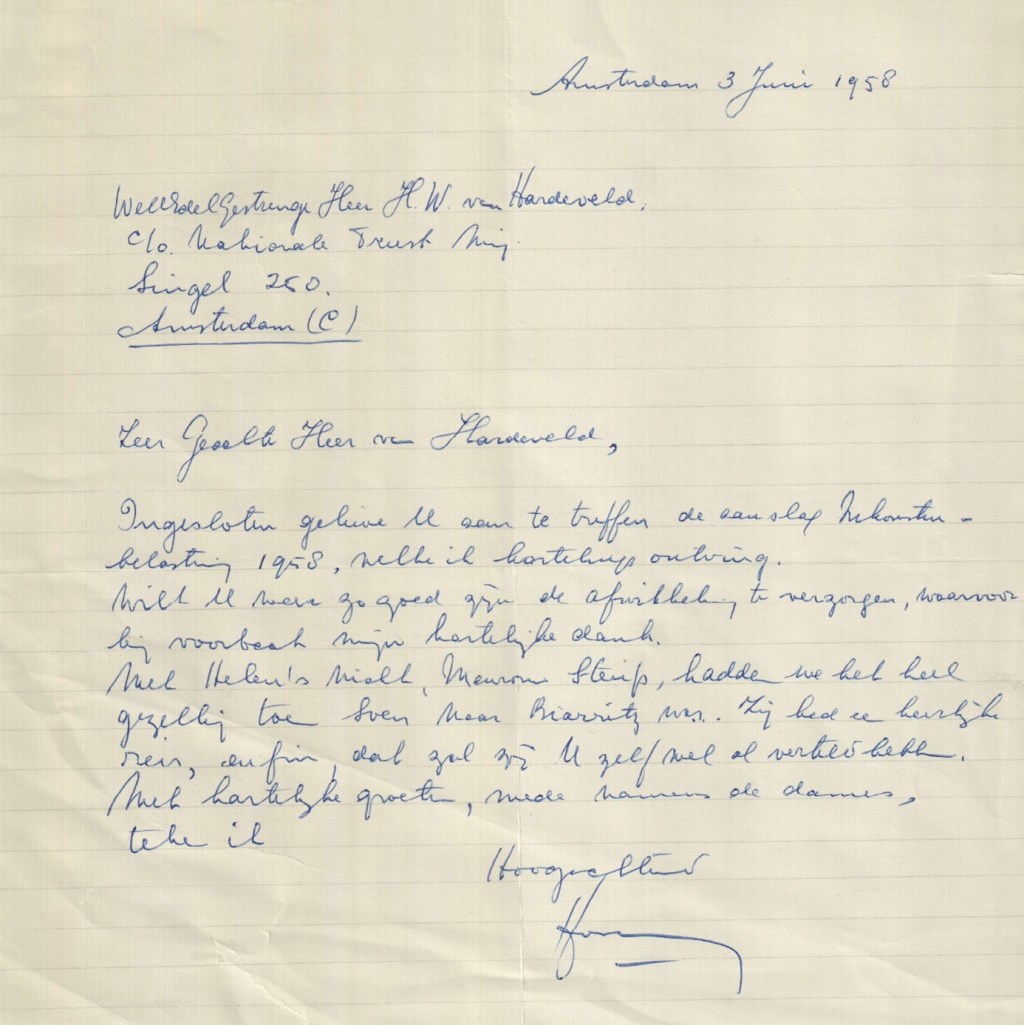 Amsterdam 3 Juni 1958
WelEdelGestrenge Heer H.W. van Hardeveld,
c/o. Nationale Trust Mij.
Singel 250.
Amsterdam (C)
Zeer Geachte Heer van Hardeveld,
Ingesloten gelieve U aan te treffen de aanslag Inkomsten-
belasting 1958, welke ik hartelings ontving.
Wilt U weer zo goed zijn de afwikkeling te verzorgen, waarvoor
bij voorbaat mijn hartelijke dank.
Met Helen's nicht, Mevrouw, hadden we het heel
gezellig toen Sven naar Biarritz was. Zij had een heerlijke
reis, enfin, dat zal zij U zelf wel al verteld hebben.
Met hartelijke groeten, mede namens de dames,
teken ik
Hoogachtend